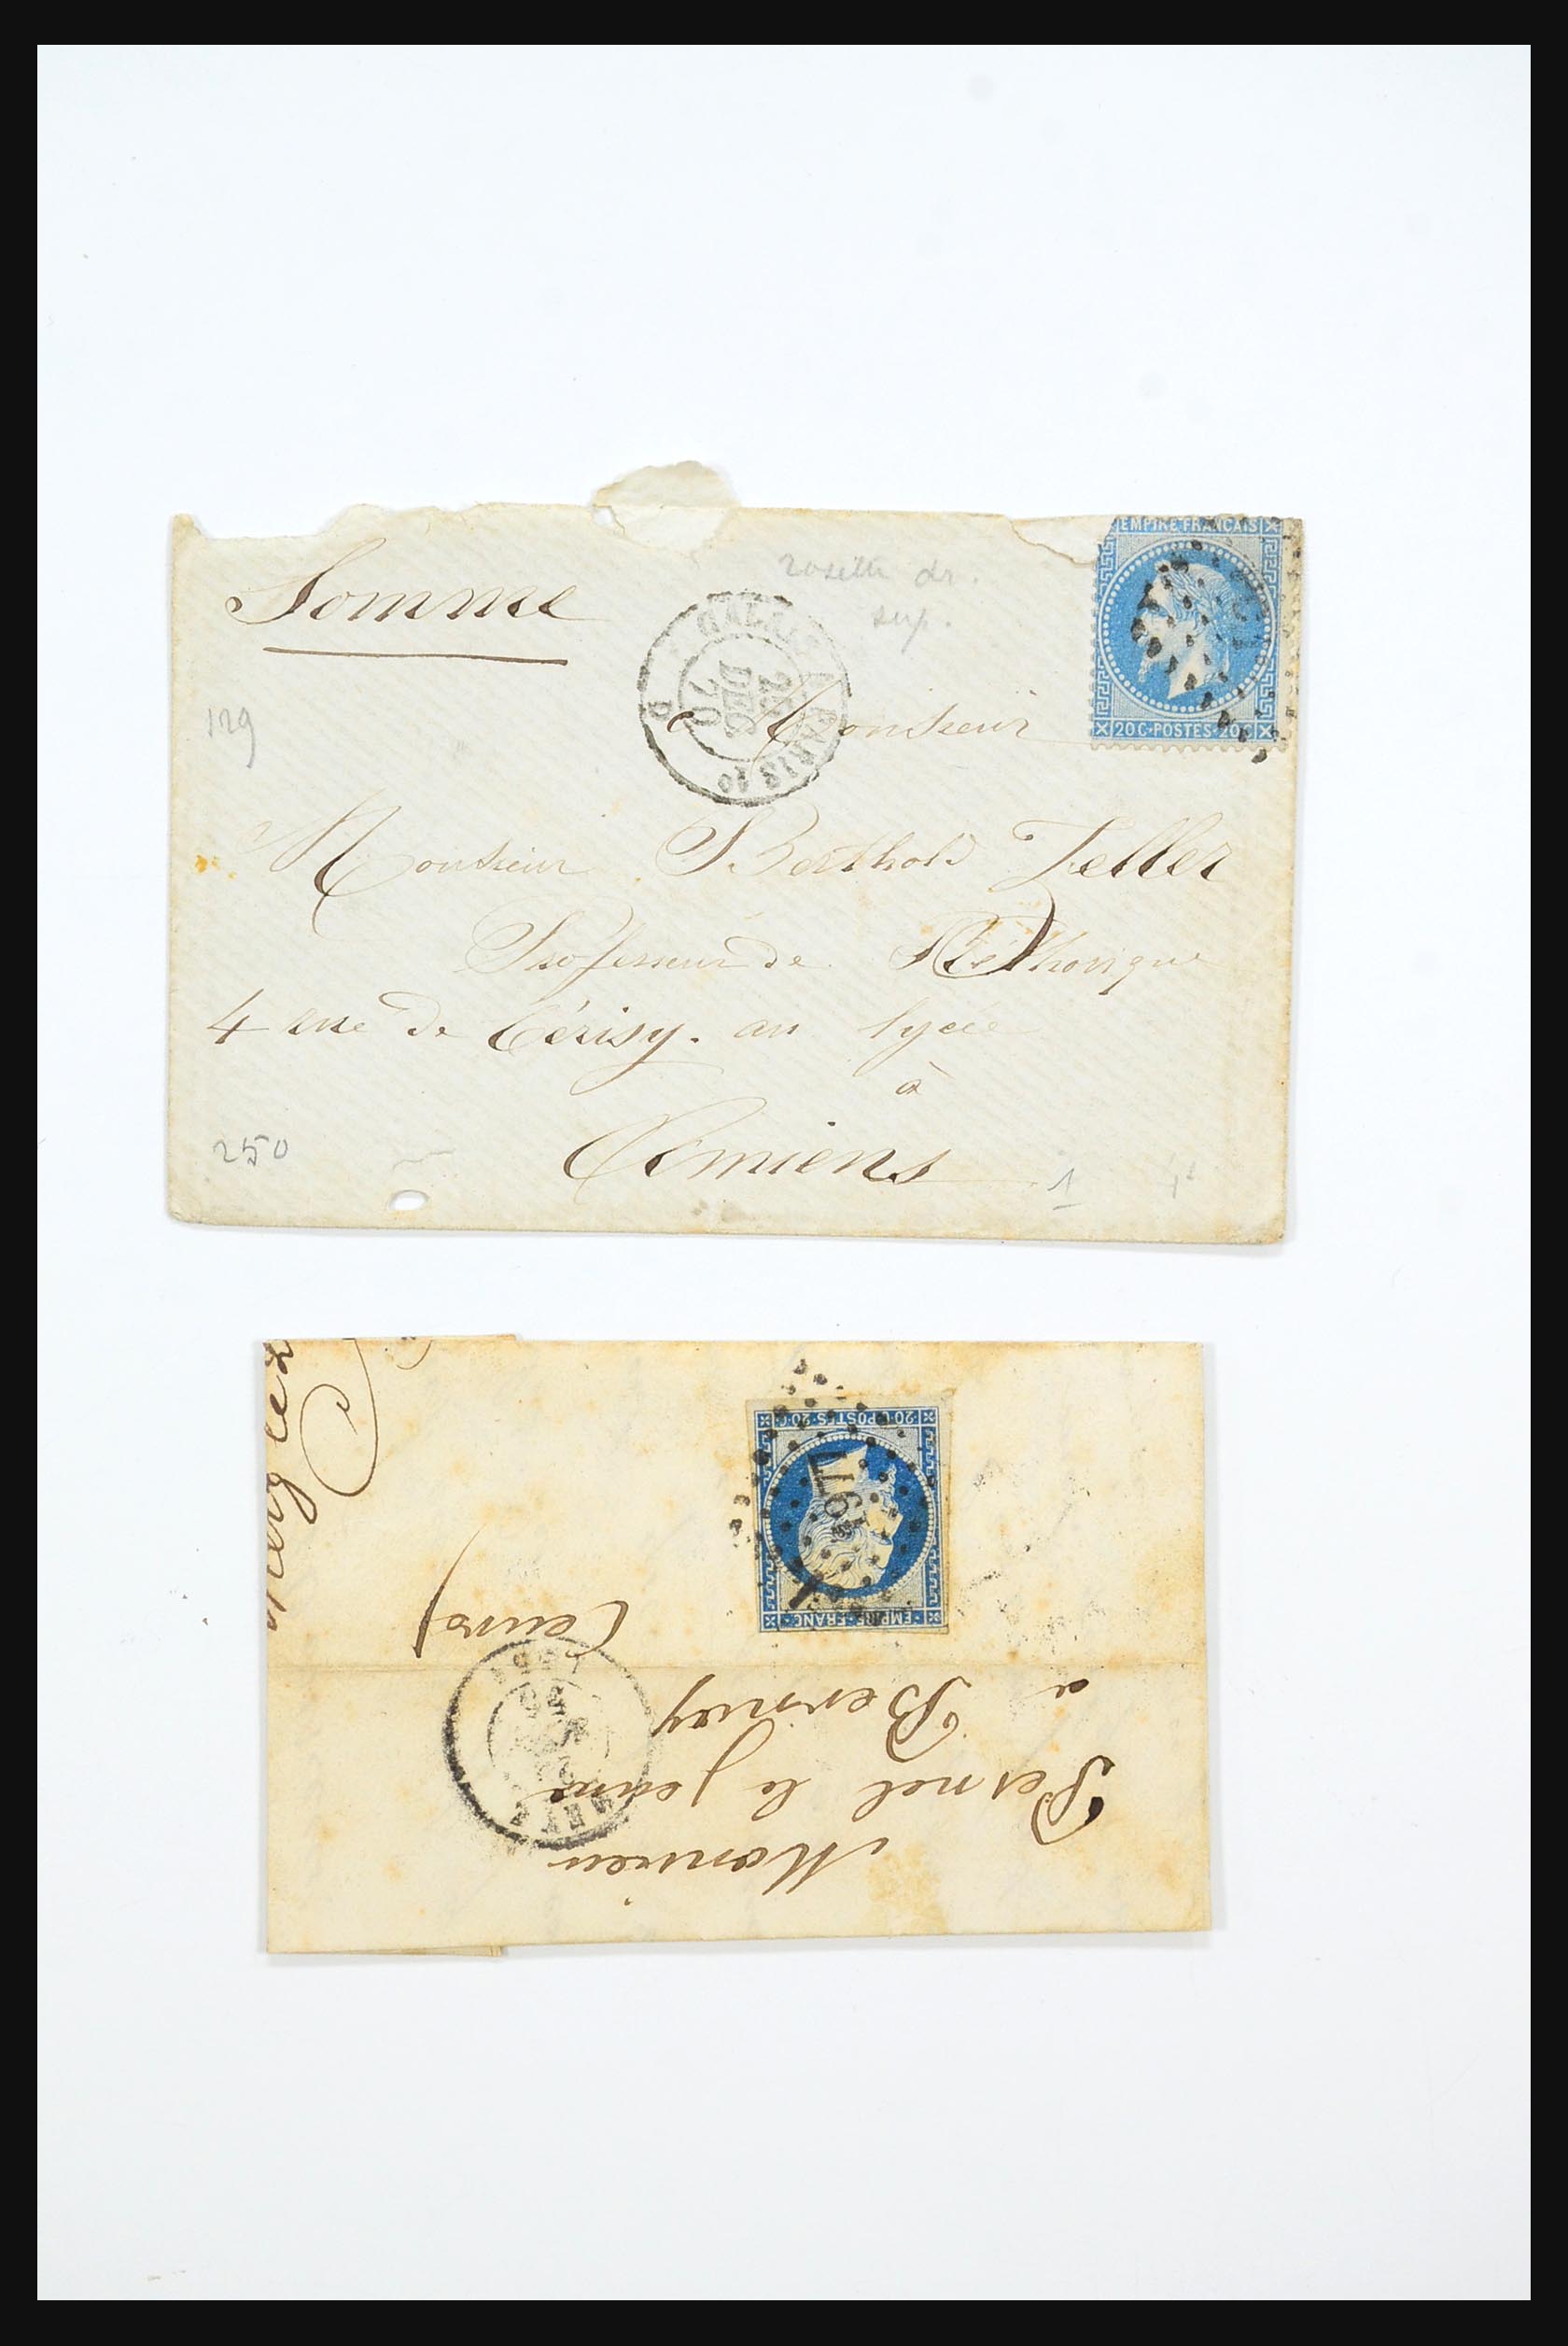 EMPIRE FRANCAIS
rosette dr.
sup.
Somme
CALAIS A PARIS 1º
DEC
70
129
à Monsieur
20 C·POSTES·20 C
Monsieur Berthold Zeller
Professeur de Réthorique
4 rue de Cérisy. au lycée
à
Amiens
250
1
20·C·POSTES·20·C
EMPIRE·FRANC
Monsieur
Pesnel le jeune
à Bernay
(eure)